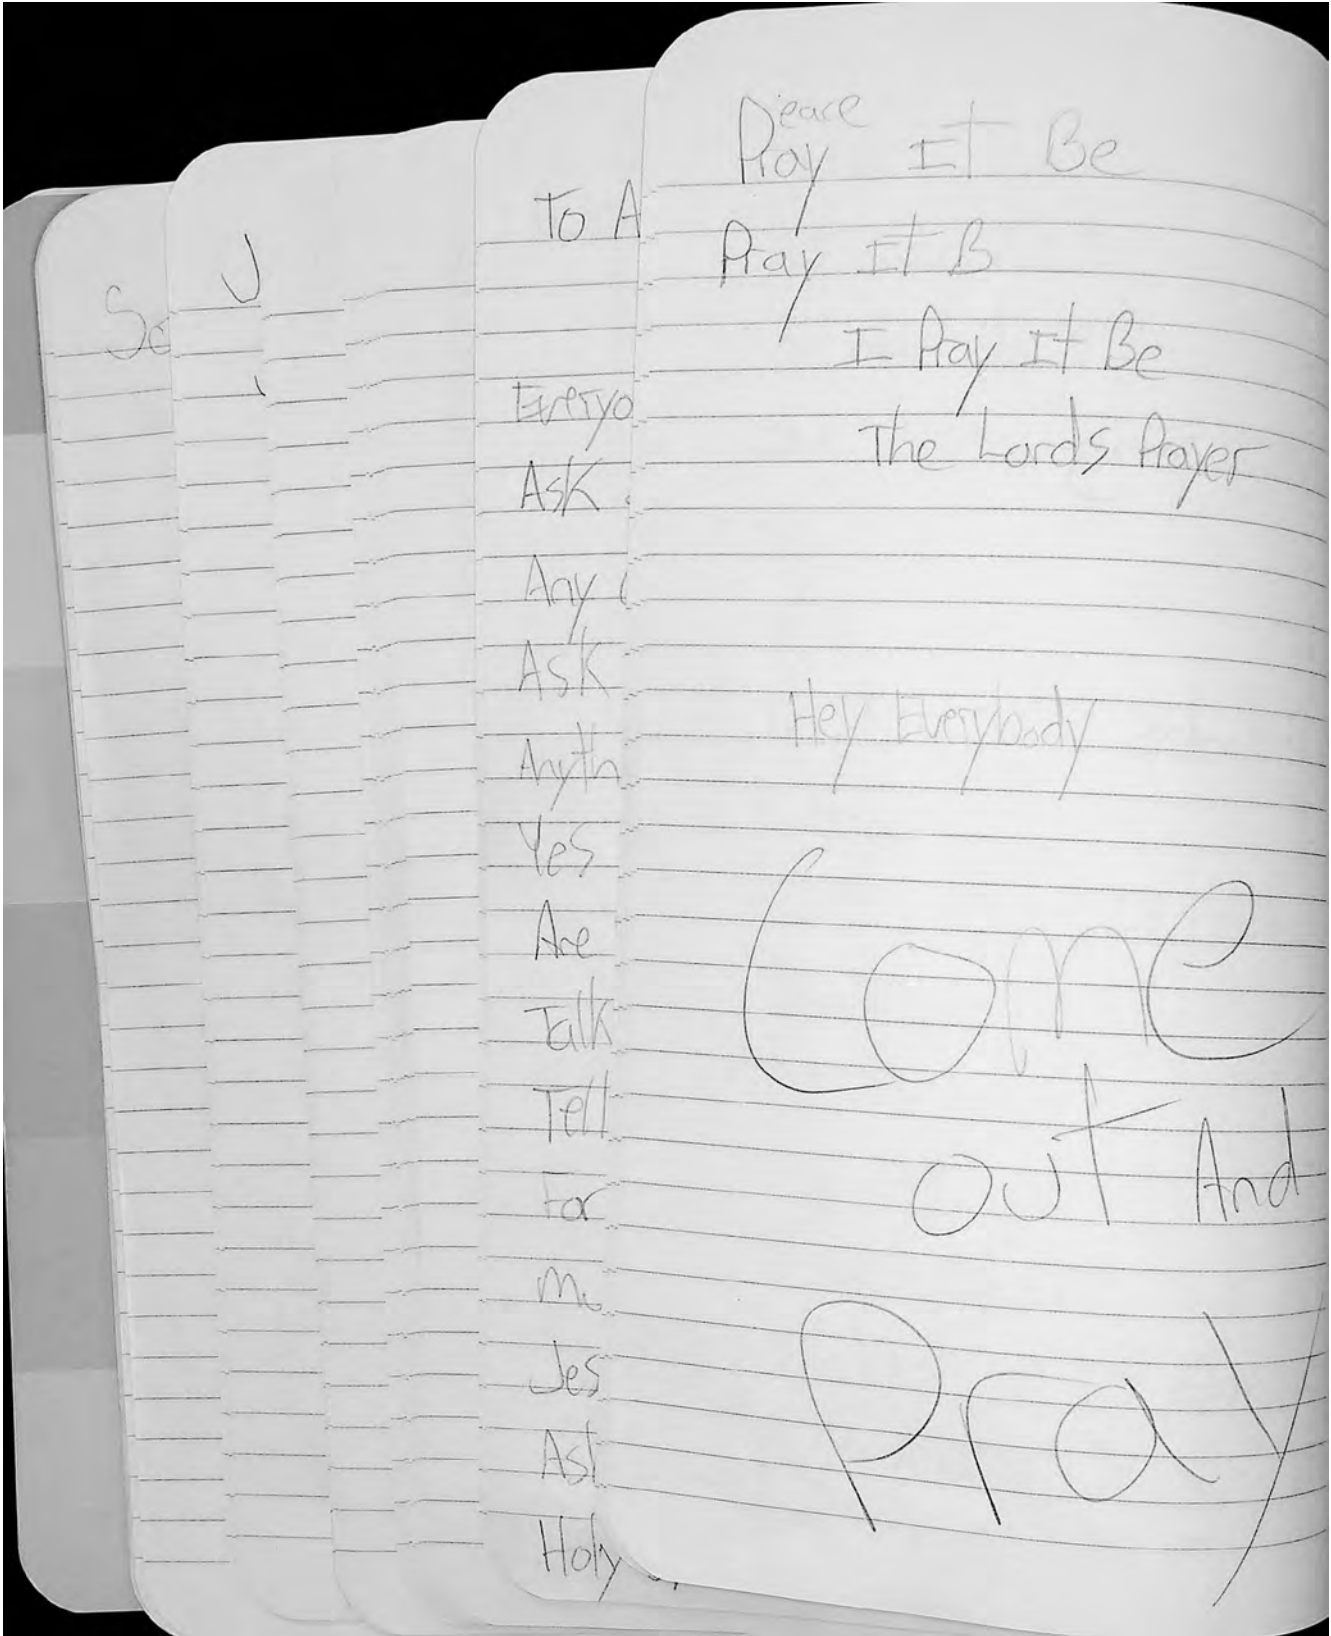 So
J
To A
Everyo
Ask
Any
Ask
Anyth
Yes
Are
Talk
Tell
For
Jes
Holy
Peace
Pray It Be
Pray It B
I Pray It Be
The Lords Prayer
Hey Everybody
Come
out And
Pray